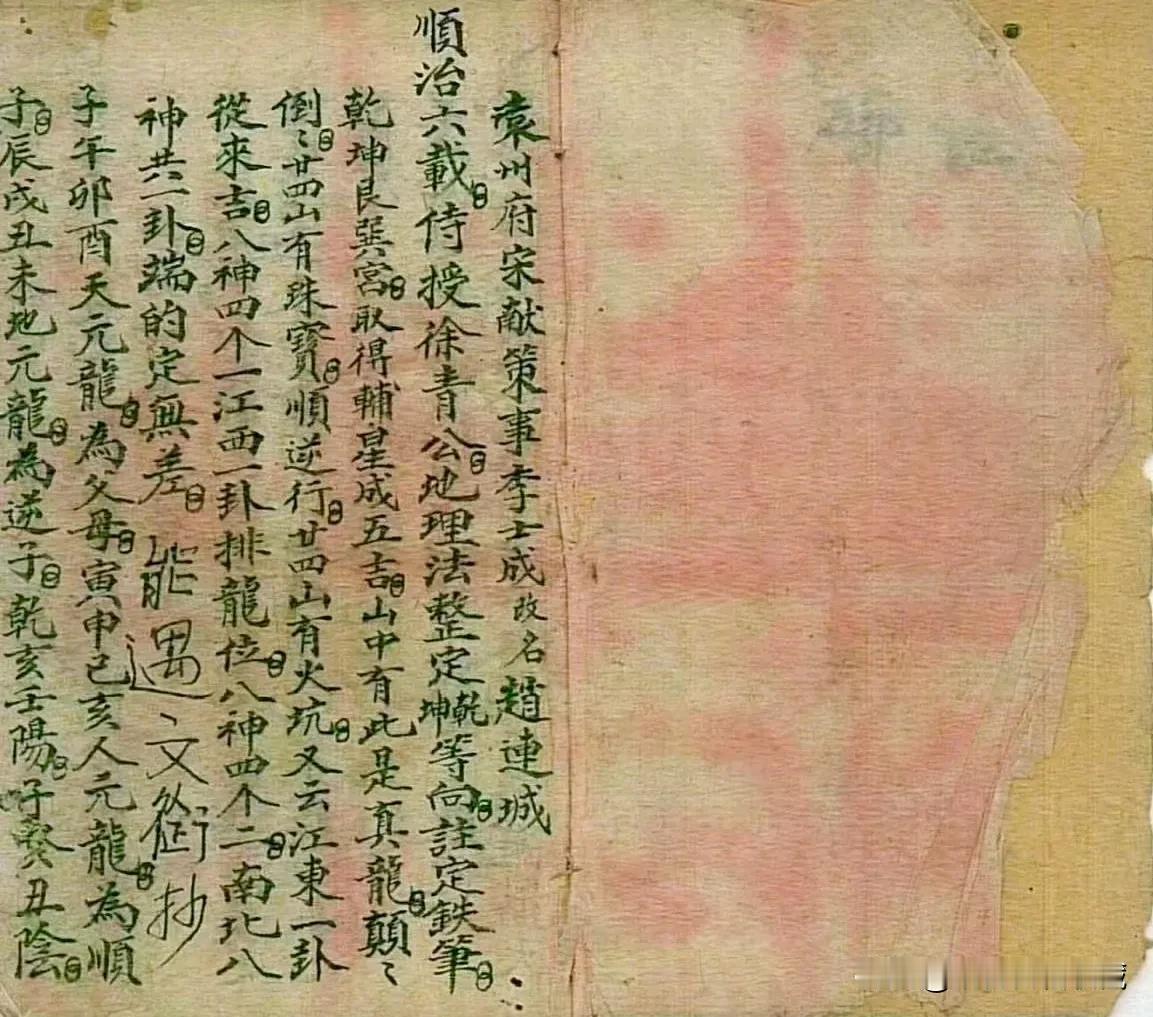 袁州府宋献策事李士成改名趙連城
順治六載侍授徐青公地理法整定乾坤等向註定鉄筆
乾坤艮巽宮取得輔星成五吉山中有此是真龍顛〻
倒〻廿四山有珠寶順逆行廿四山有火坑又云江東一卦
從來吉八神四个一江西一卦排龍位八神四个二南北八
神共一卦端的定無差能遇文衙抄
子午卯酉天元龍為父母寅申巳亥人元龍為順
子辰戌丑未地元龍為逆子乾亥壬陽子癸丑陰